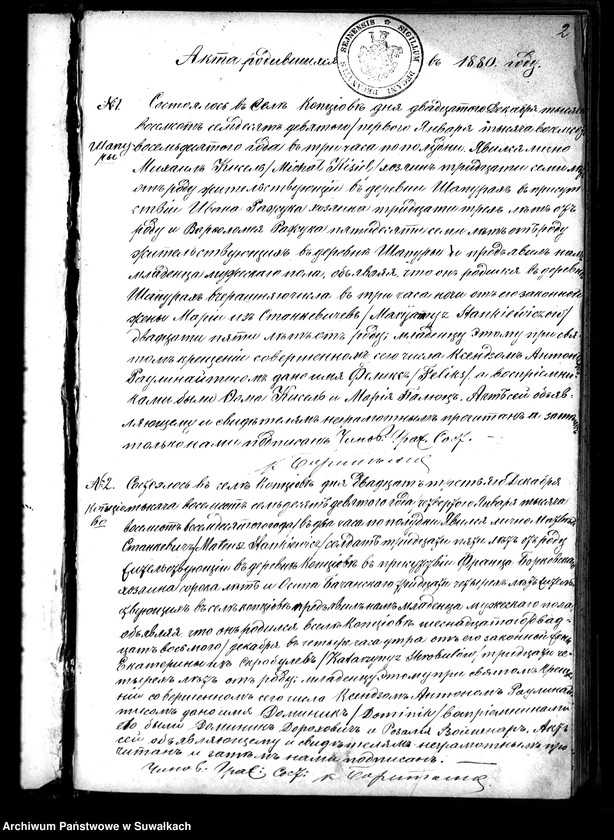 2
Акта родившихся въ 1880 году.
SIGILLUM DECANI SEJNENSIS
№1.
Шапуры
Состоялось въ Селѣ Копціовѣ дня двадцатого Декабря тысяча
восемсотъ семдесятъ девятого / перваго Января тысяча восемсотъ
восемьдесятого года въ три часа по полудни. Явился лично
Михаилъ Кисель /Michał Kisiel/ хозяинъ тридцати семи лѣтъ
отъ роду жительствующій въ деревни Шапурахъ въ присут
ствіи Ивана хозяина тридцати трехъ лѣтъ отъ
роду и пятидесяти семи лѣтъ отъ роду
жительствующихъ въ деревнѣ Шапуры и предъявилъ намъ
младенца мужескаго пола, объявляя, что онъ родился въ деревнѣ
Шапурахъ вчерашняго числа въ три часа ночи отъ его законной
жены Маріи изъ Станкевичевъ /Maryanny Stankiewiczow/
двадцати пяти лѣтъ отъ роду; младенцу этому при свя
томъ крещеніи совершенномъ сего числа Ксендзомъ Антономъ
дано имя Феликсъ /Feliks/, а воспріемни
ками были Кисель и Марія Актъ сей объяв
ляющему и свидѣтелямъ неграмотнымъ прочитанъ а затѣмъ
только нами подписанъ Чинов. Граж. Сост.
№2.
Копціово
Состоялось въ селѣ Копціовѣ дня Двадцать третьяго Декабря
тысяча восемсотъ семдесятъ девятого года / четвертого Января тысяча
восемсотъ восемдесятого года / въ два часа по полудни Явился лично
Станкевичъ /Mateusz Stankiewicz/ солдатъ тридцати пяти лѣтъ отъ роду
жительствующій въ деревнѣ Копціовѣ въ присутствіи Франца
хозяина сорока лѣтъ и Осипа тридцати четырехъ лѣтъ жительст
вующихъ въ селѣ Копціовѣ и предъявилъ намъ младенца мужескаго пола,
объявляя что онъ родился въ селѣ Копціовѣ
декабря въ четыре часа утра отъ его законной жены
Екатерины изъ /Katarzyny тридцати че
тырехъ лѣтъ отъ роду; младенцу этому при святомъ креще
ніи совершенномъ сего числа Ксендзомъ Антономъ
дано имя Доминикъ /Dominik/ воспріемниками
его были Доминикъ Дороховичъ и Розалія Актъ
сей объявляющему и свидѣтелямъ неграмотнымъ про
читанъ и затѣмъ нами подписанъ.
Чинов. Граж. Сост.
Archiwum Państwowe w Suwałkach